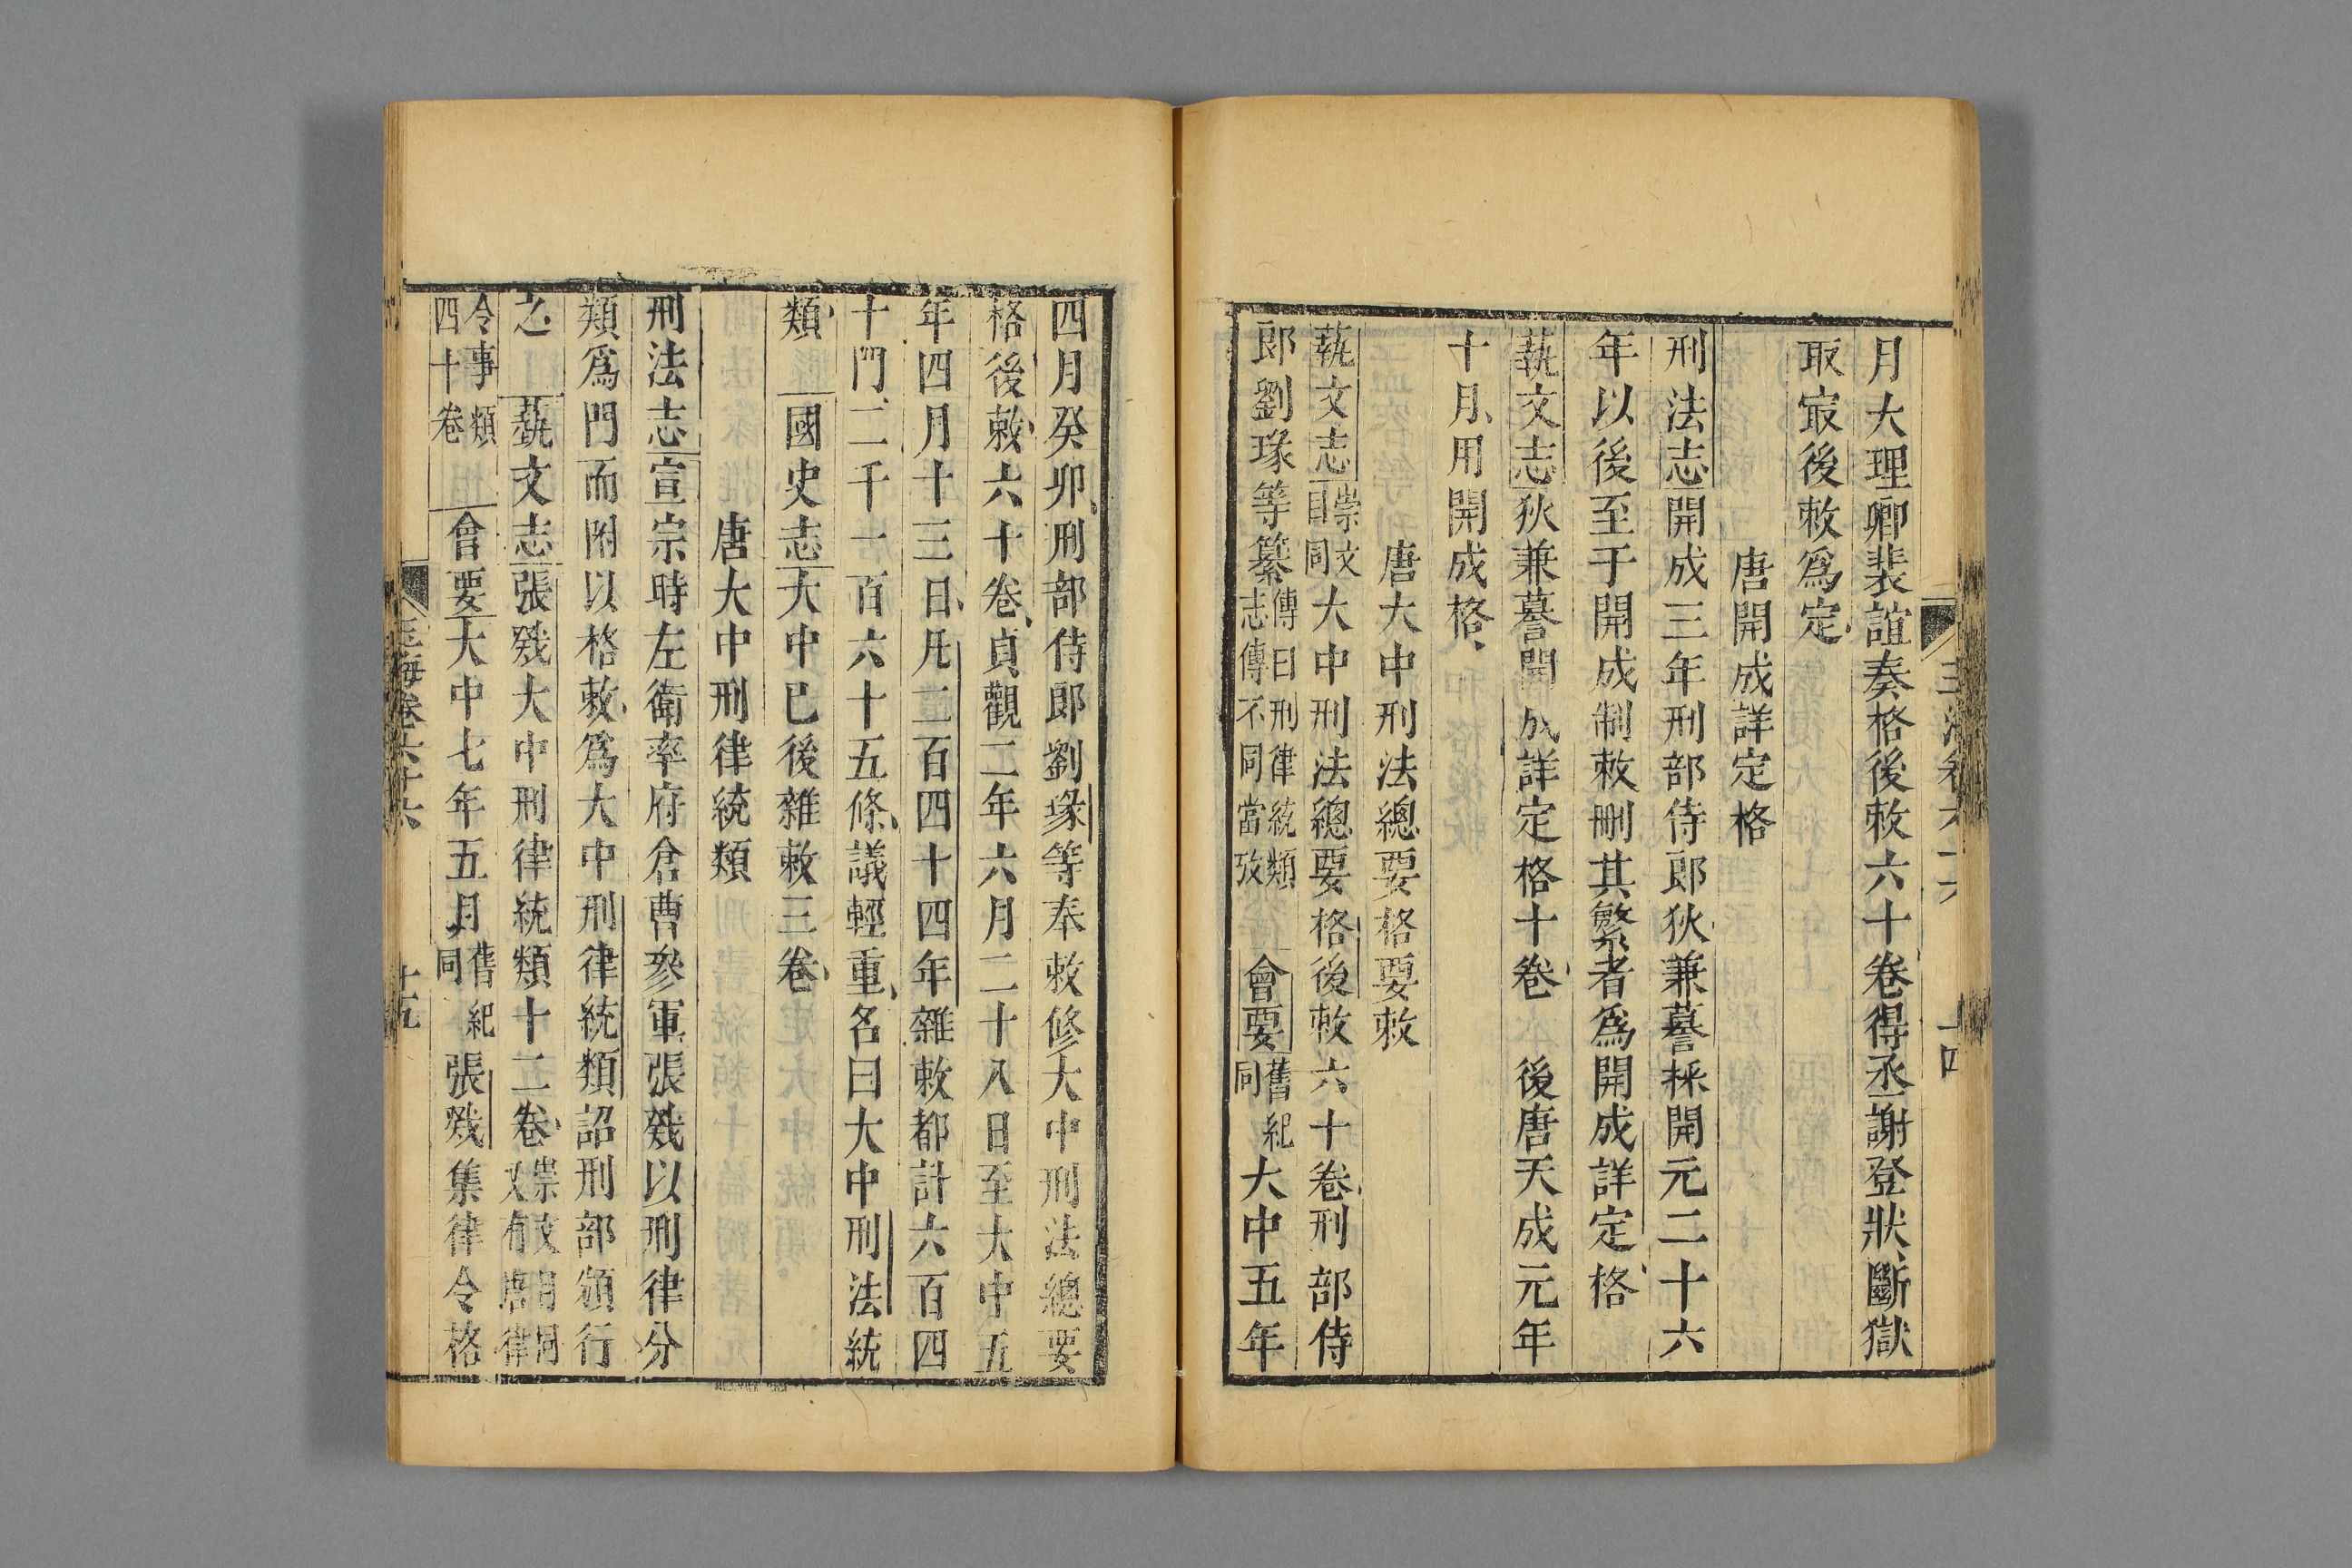 月大理卿裴誼奏格後敕六十卷得丞謝登狀斷獄
取㝡後敕爲定
唐開成詳定格
刑法志開成三年刑部侍郎狄兼謩採開元二十六
年以後至于開成制敕刪其繁者爲開成詳定格
蓺文志狄兼謩開成詳定格十卷 後唐天成元年
十月用開成格
唐大中刑法總要格要敕
蓺文志崇文目同大中刑法總要格後敕六十卷刑部侍
郎劉瑑等纂傳曰刑律統類志傳不同當攷 會要舊紀同大中五年
四月癸卯刑部侍郎劉瑑等奉敕修大中刑法總要
格後敕六十卷貞觀二年六月二十八日至大中五
年四月十三日凡二百四十四年雜敕都計六百四
十門二千一百六十五條議輕重名曰大中刑法統
類 國史志大中已後雜敕三卷
唐大中刑律統類
刑法志宣宗時左衛率府倉曹參軍張戣以刑律分
類爲門而附以格敕爲大中刑律統類詔刑部頒行
之 蓺文志張戣大中刑律統類十二卷崇文目同又有唐律
令事類四十卷 會要大中七年五月舊紀同張戣集律令格
玉海卷六十六 十五